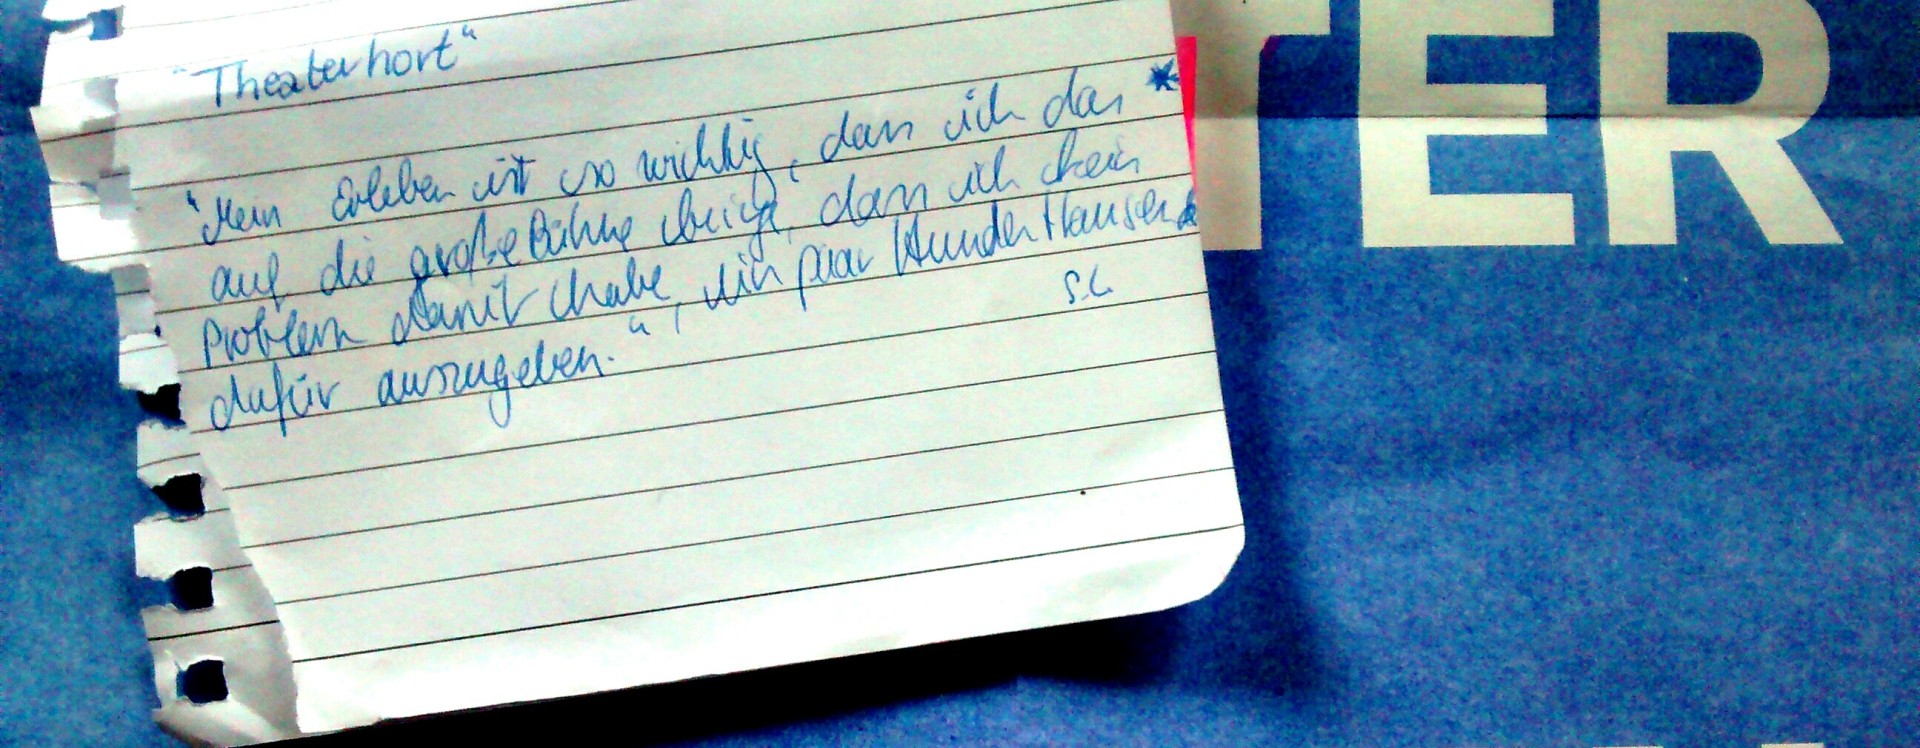 "Theaterhort"
"Mein Erleben ist so wichtig, dass ich das *
auf die große Bühne bringe, dass ich kein
Problem damit habe, ein paar Hundert Tausend
dafür auszugeben."
S.L.
TER